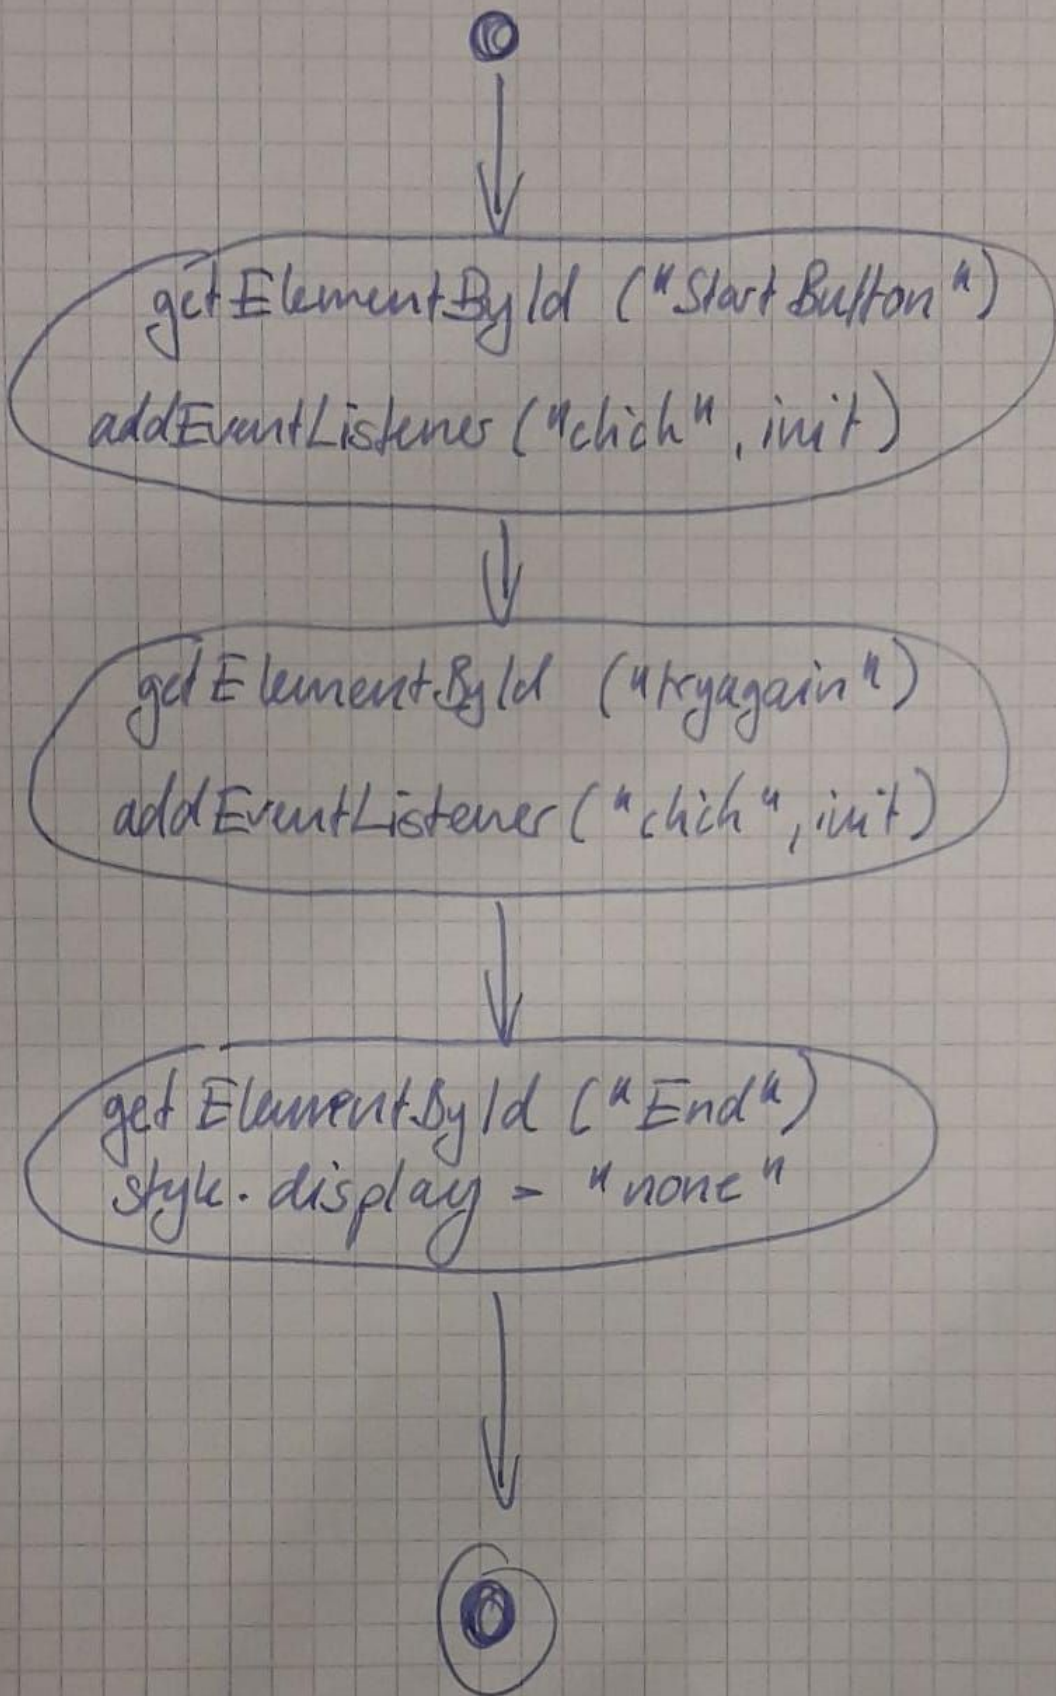 getElementById ("StartButton")
addEventListener ("click", init)
getElementById ("tryagain")
addEventListener ("click", init)
getElementById ("End")
style.display = "none"